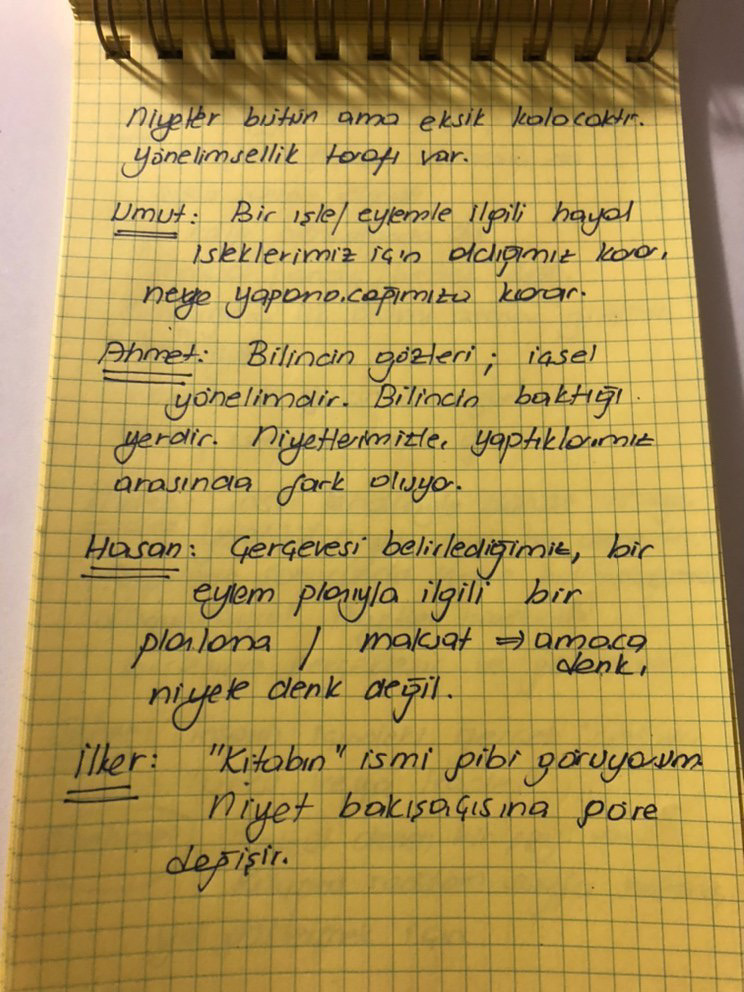 Niyetler bütün ama eksik kalacaktır.
Yönelimsellik tarafı var.
Umut: Bir işle/eylemle ilgili hayal
isteklerimiz için aldığımız karar,
neye yapamayacağımıza karar.
Ahmet: Bilincin gözleri; içsel
yönelimdir. Bilincin baktığı
yerdir. Niyetlerimizle, yaptıklarımız
arasında fark oluyor.
Hasan: Çerçevesi belirlediğimiz, bir
eylem planıyla ilgili bir
planlama / maksat ⇒ amaca
denk,
niyete denk değil.
İlker: "Kitabın" ismi gibi görüyorum
Niyet bakışaçısına göre
değişir.